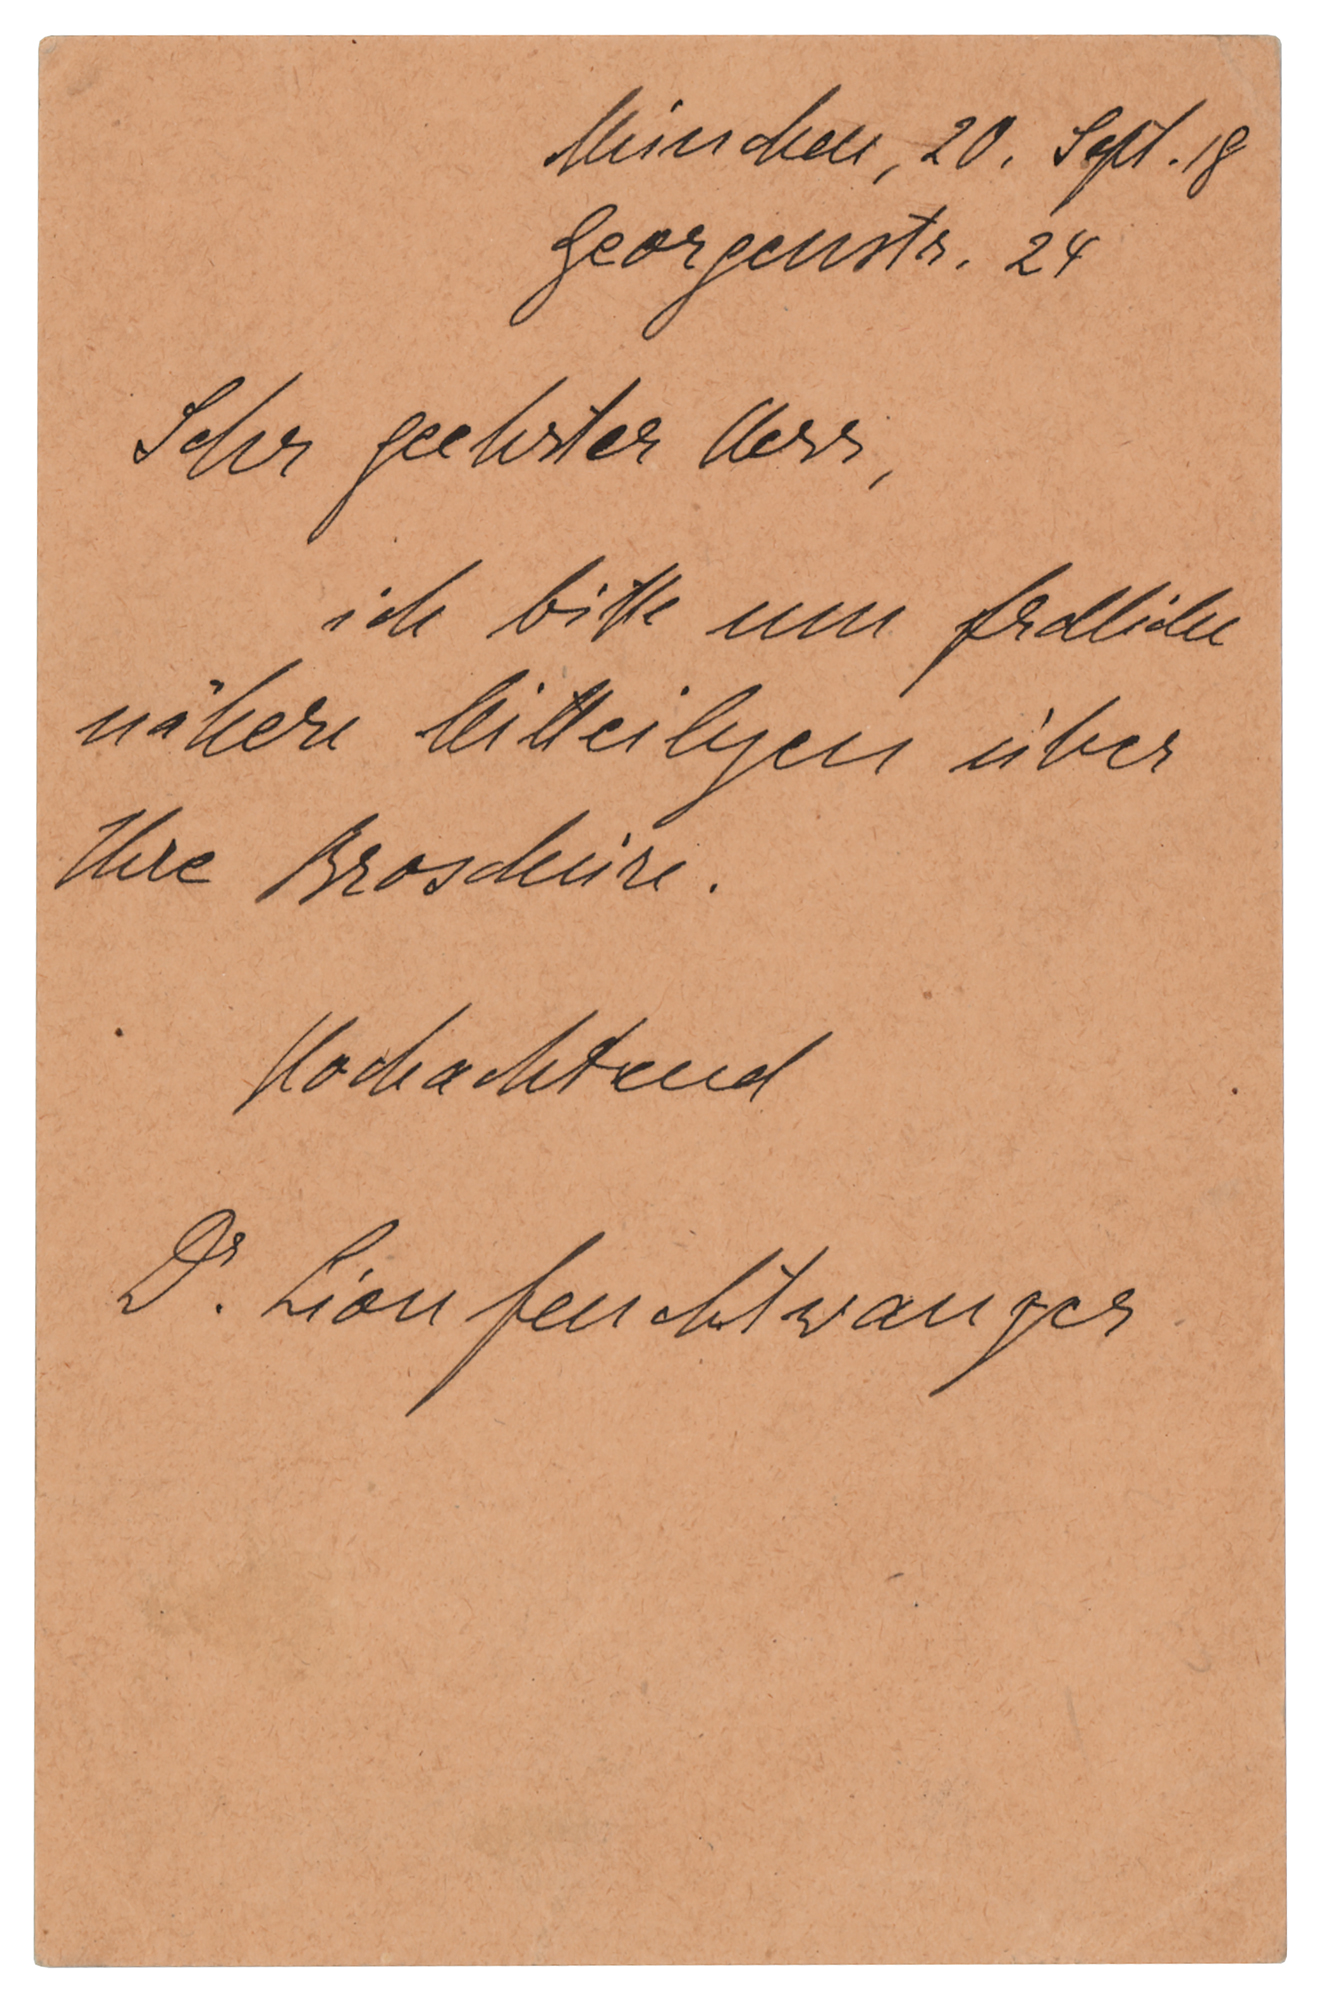 München, 20. Sept. 18
Georgenstr. 24
Sehr geehrter Herr,
ich bitte um frdliche
nähere Mitteilgen über
Ihre Broschüre.
Hochachtend
Dr. Lion Feuchtwanger